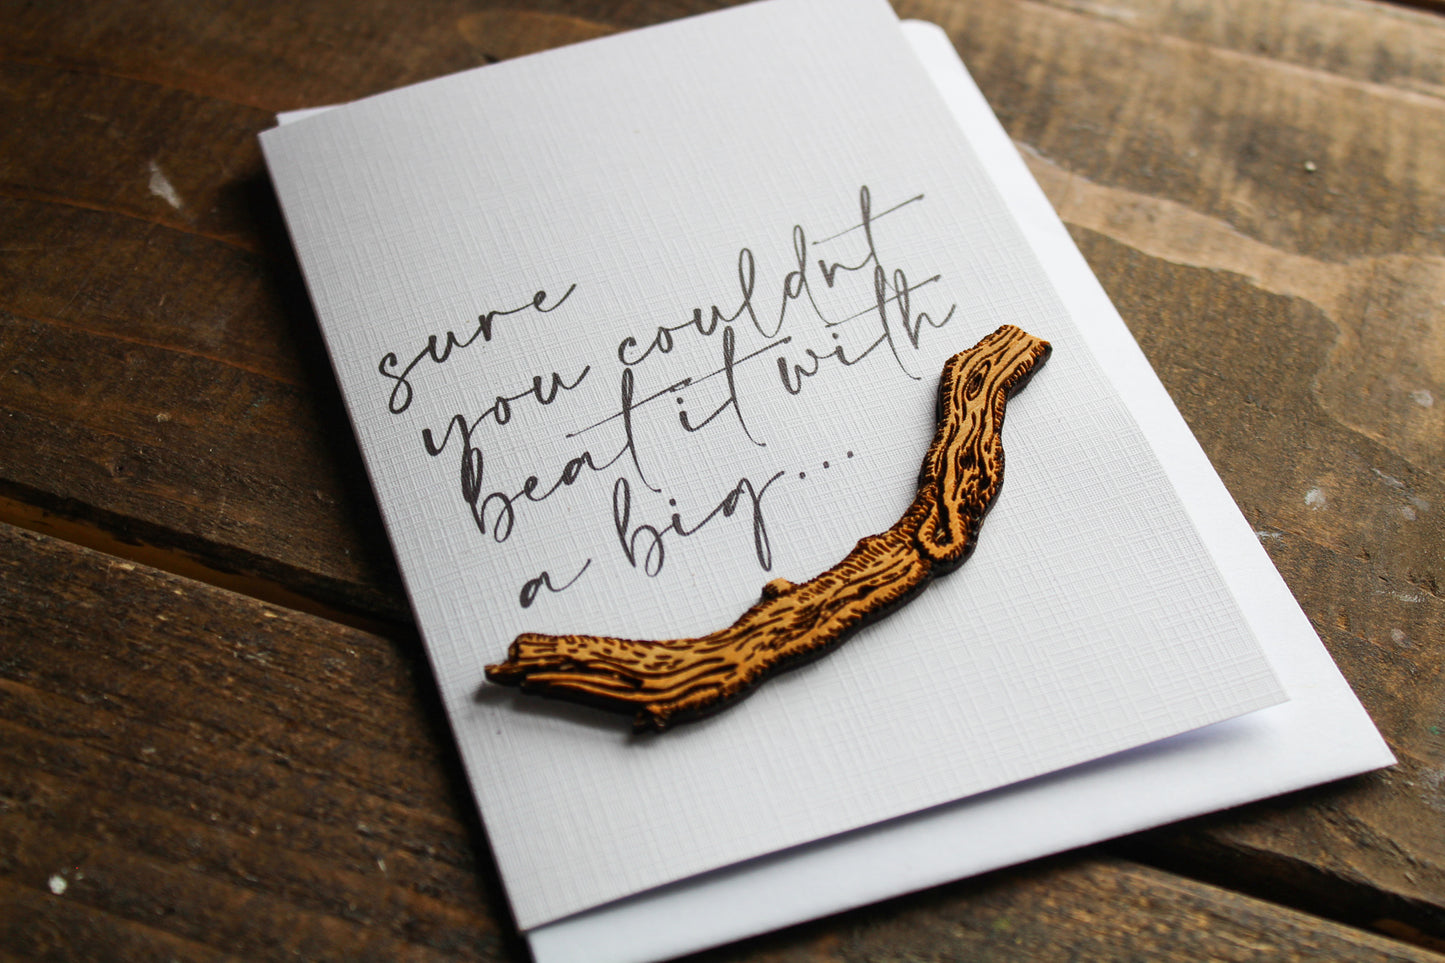 sure
you couldn't
beat it with
a big...